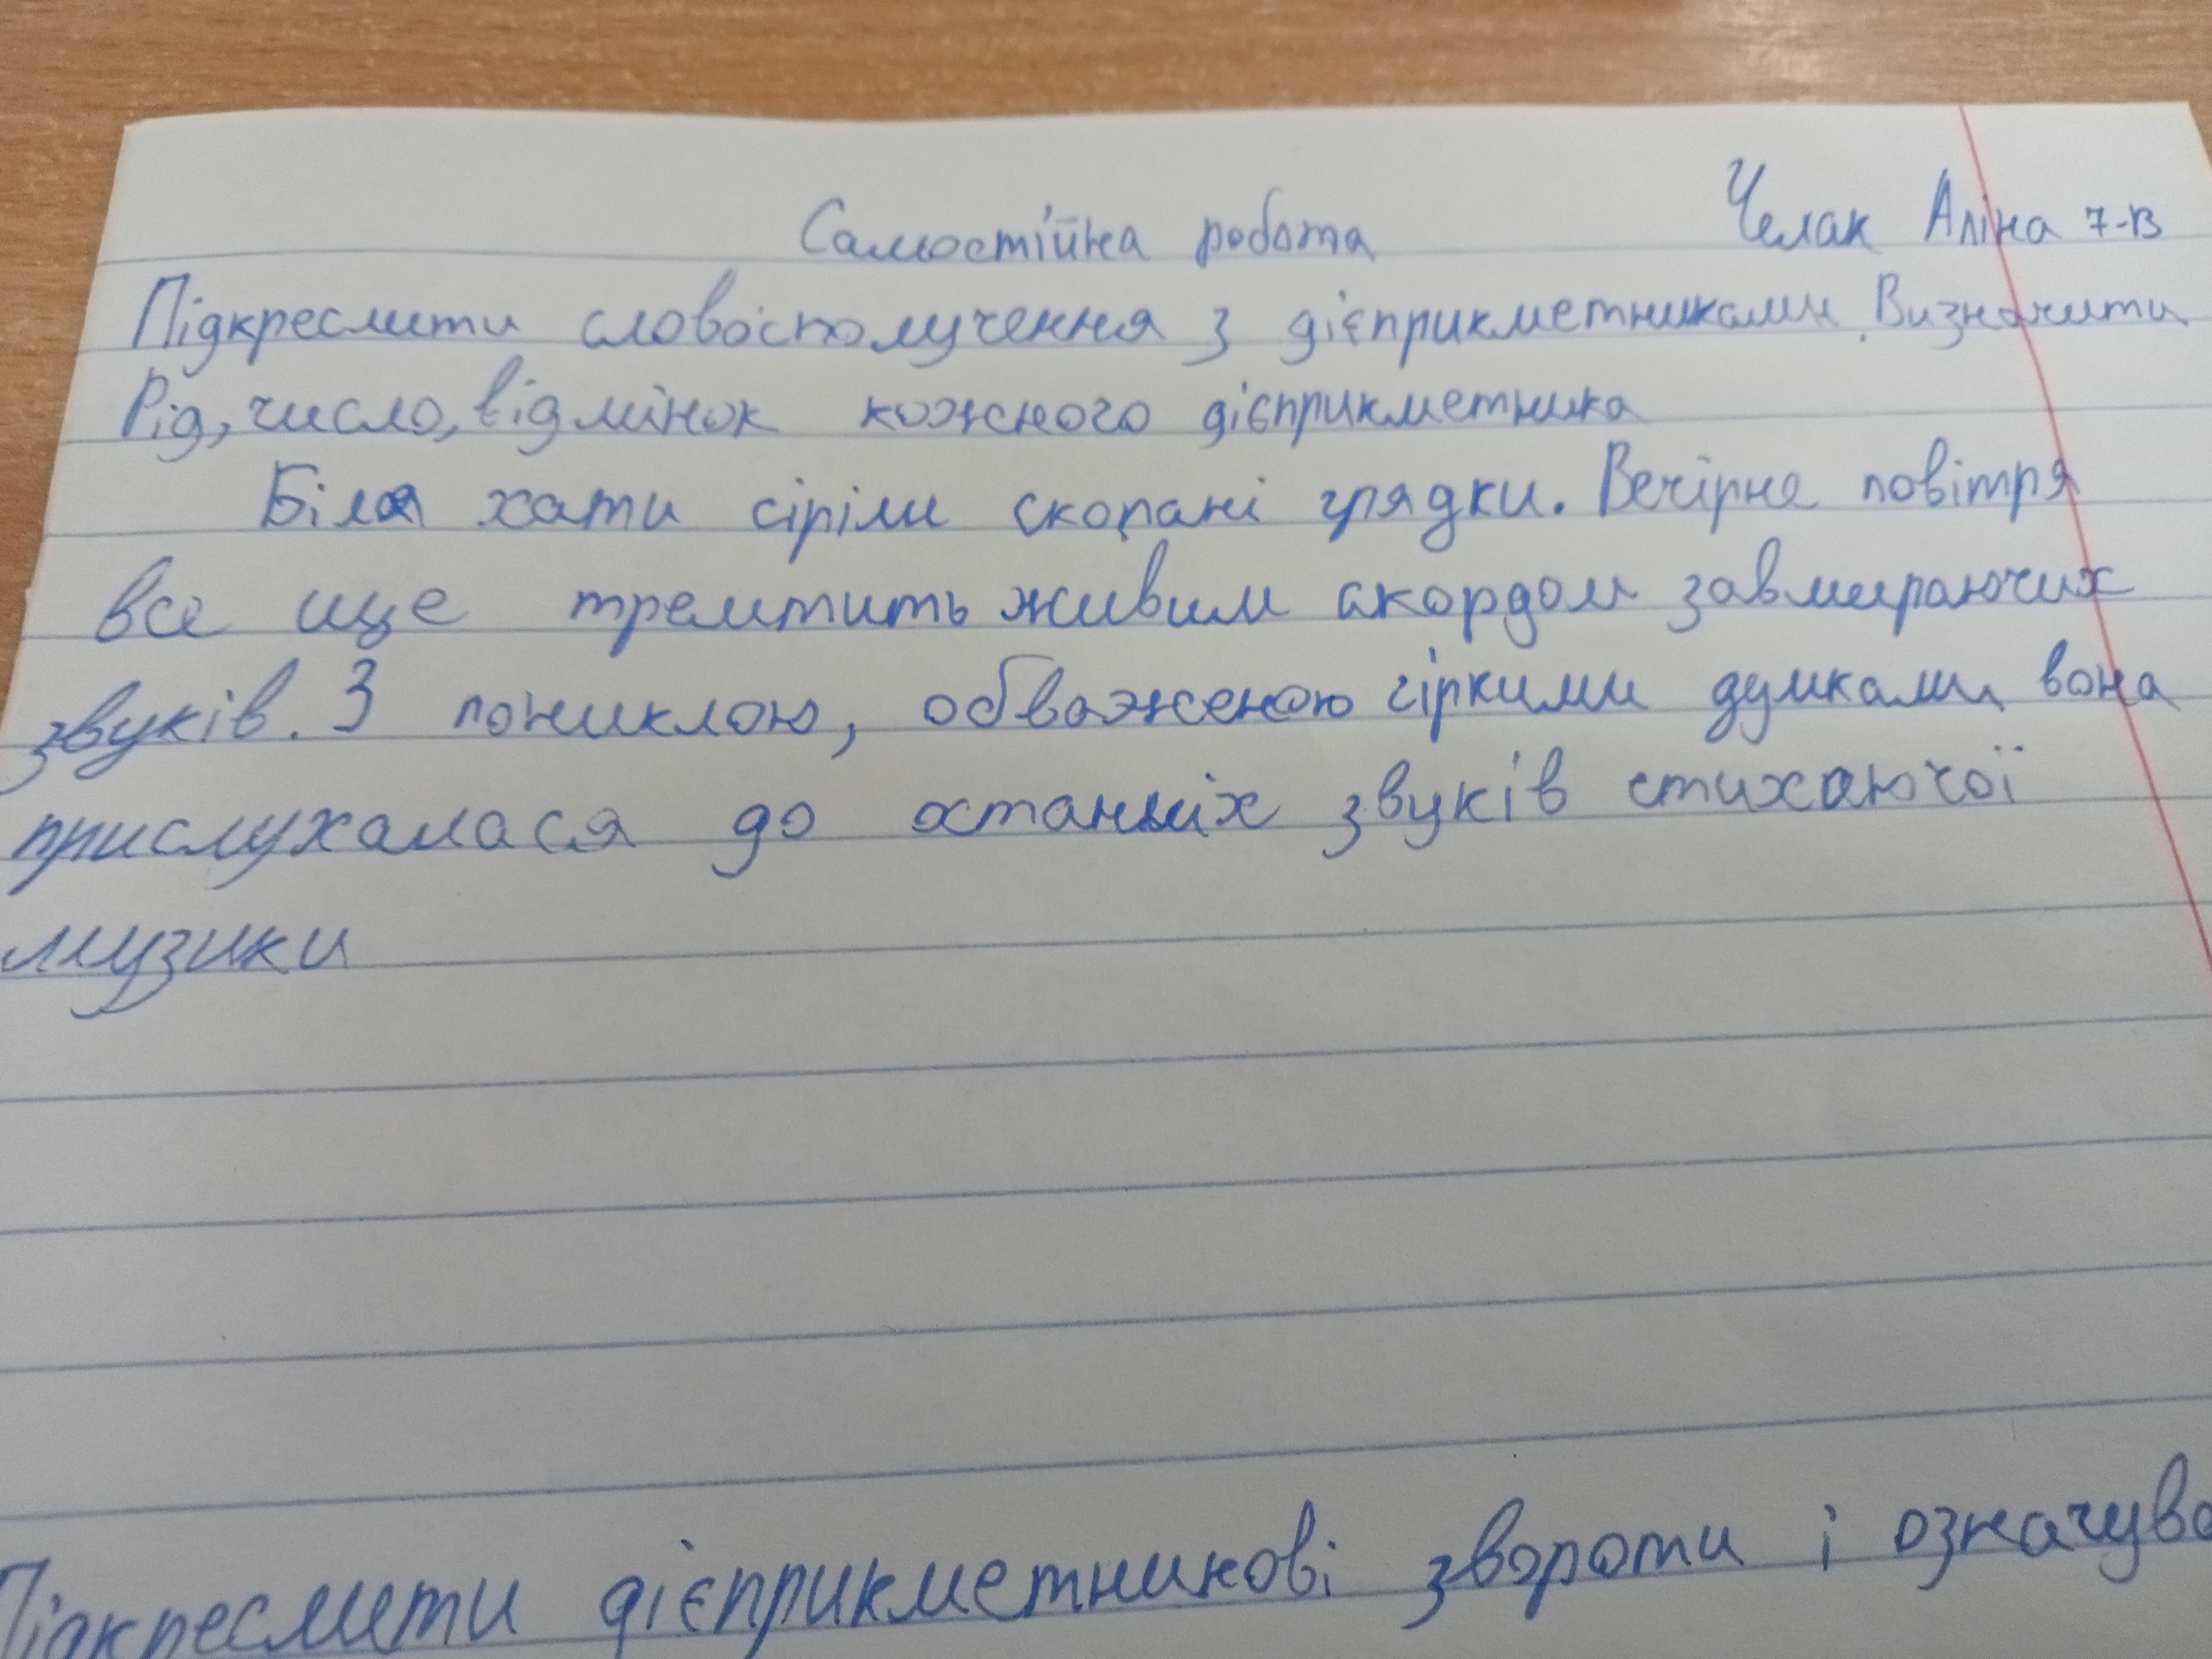 Самостійна робота Челак Аліна 7-В
Підкреслити словосполучення з дієприкметниками. Визначити
Рід, число, відмінок кожного дієприкметника
Біля хати сіріли скопані грядки. Вечірнє повітря
все ще тремтить живим акордом завмираючих
звуків. З пониклою, обваженою гіркими думками вона
прислухалася до останніх звуків стихаючої
музики
Підкреслити дієприкметникові звороти і означува